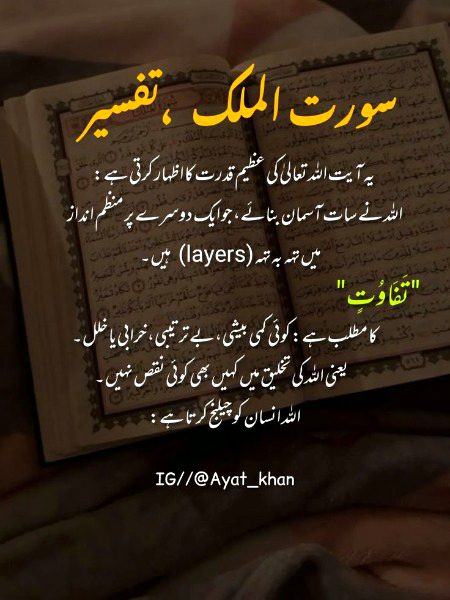 سورت الملک ، تفسیر
یہ آیت اللہ تعالیٰ کی عظیم قدرت کا اظہار کرتی ہے :
اللہ نے سات آسمان بنائے، جو ایک دوسرے پر منظم انداز
میں تہہ بہ تہہ (layers) ہیں۔
"تَفَاوُتٍ"
کا مطلب ہے : کوئی کمی بیشی، بے ترتیبی، خرابی یا خلل۔
یعنی اللہ کی تخلیق میں کہیں بھی کوئی نقص نہیں۔
اللہ انسان کو چیلنج کرتا ہے :
IG//@Ayat_khan